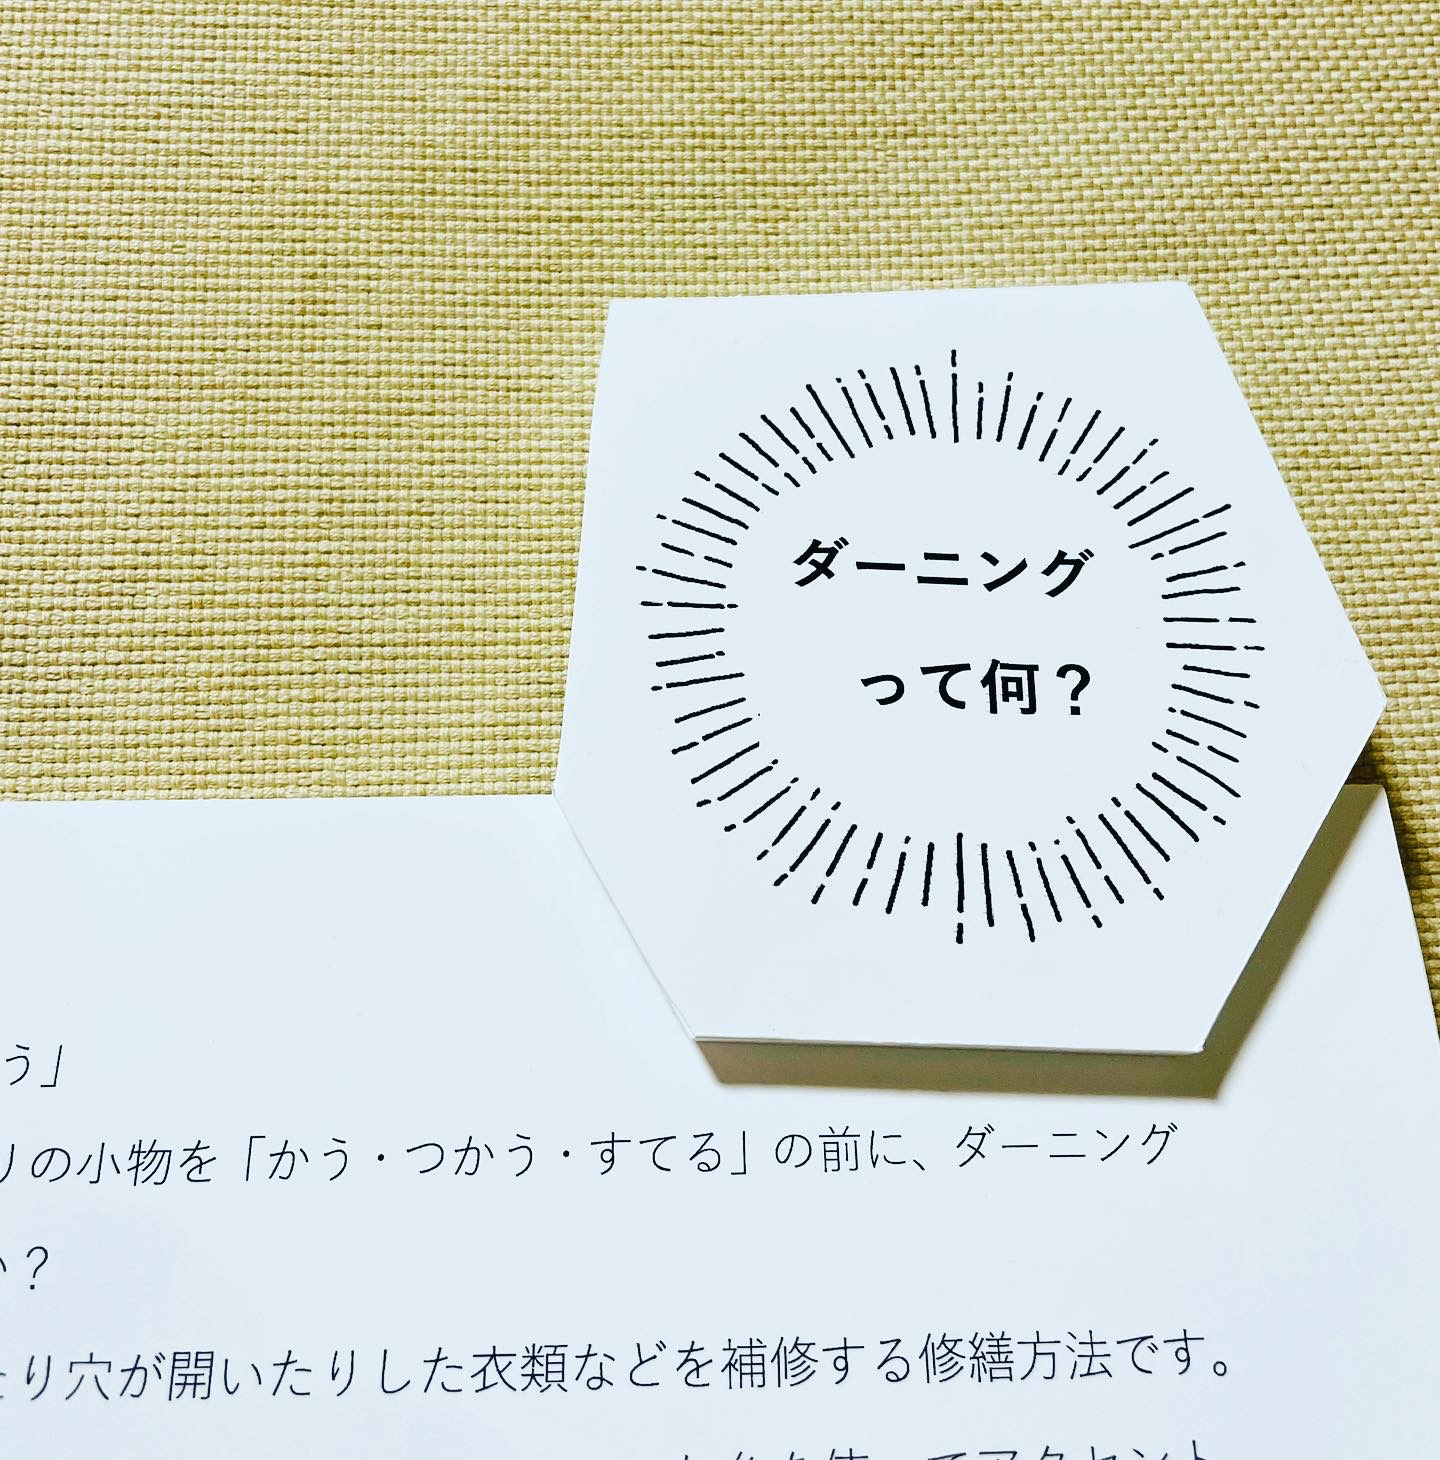 ダーニング
って何？
う」
りの小物を「かう・つかう・すてる」の前に、ダーニング
か？
たり穴が開いたりした衣類などを補修する修繕方法です。